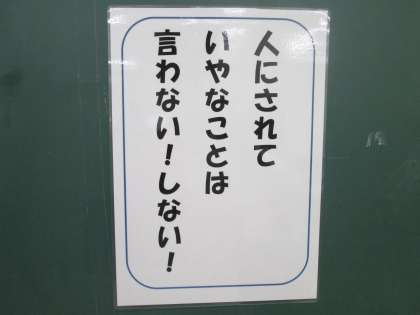 人にされて
いやなことは
言わない！しない！